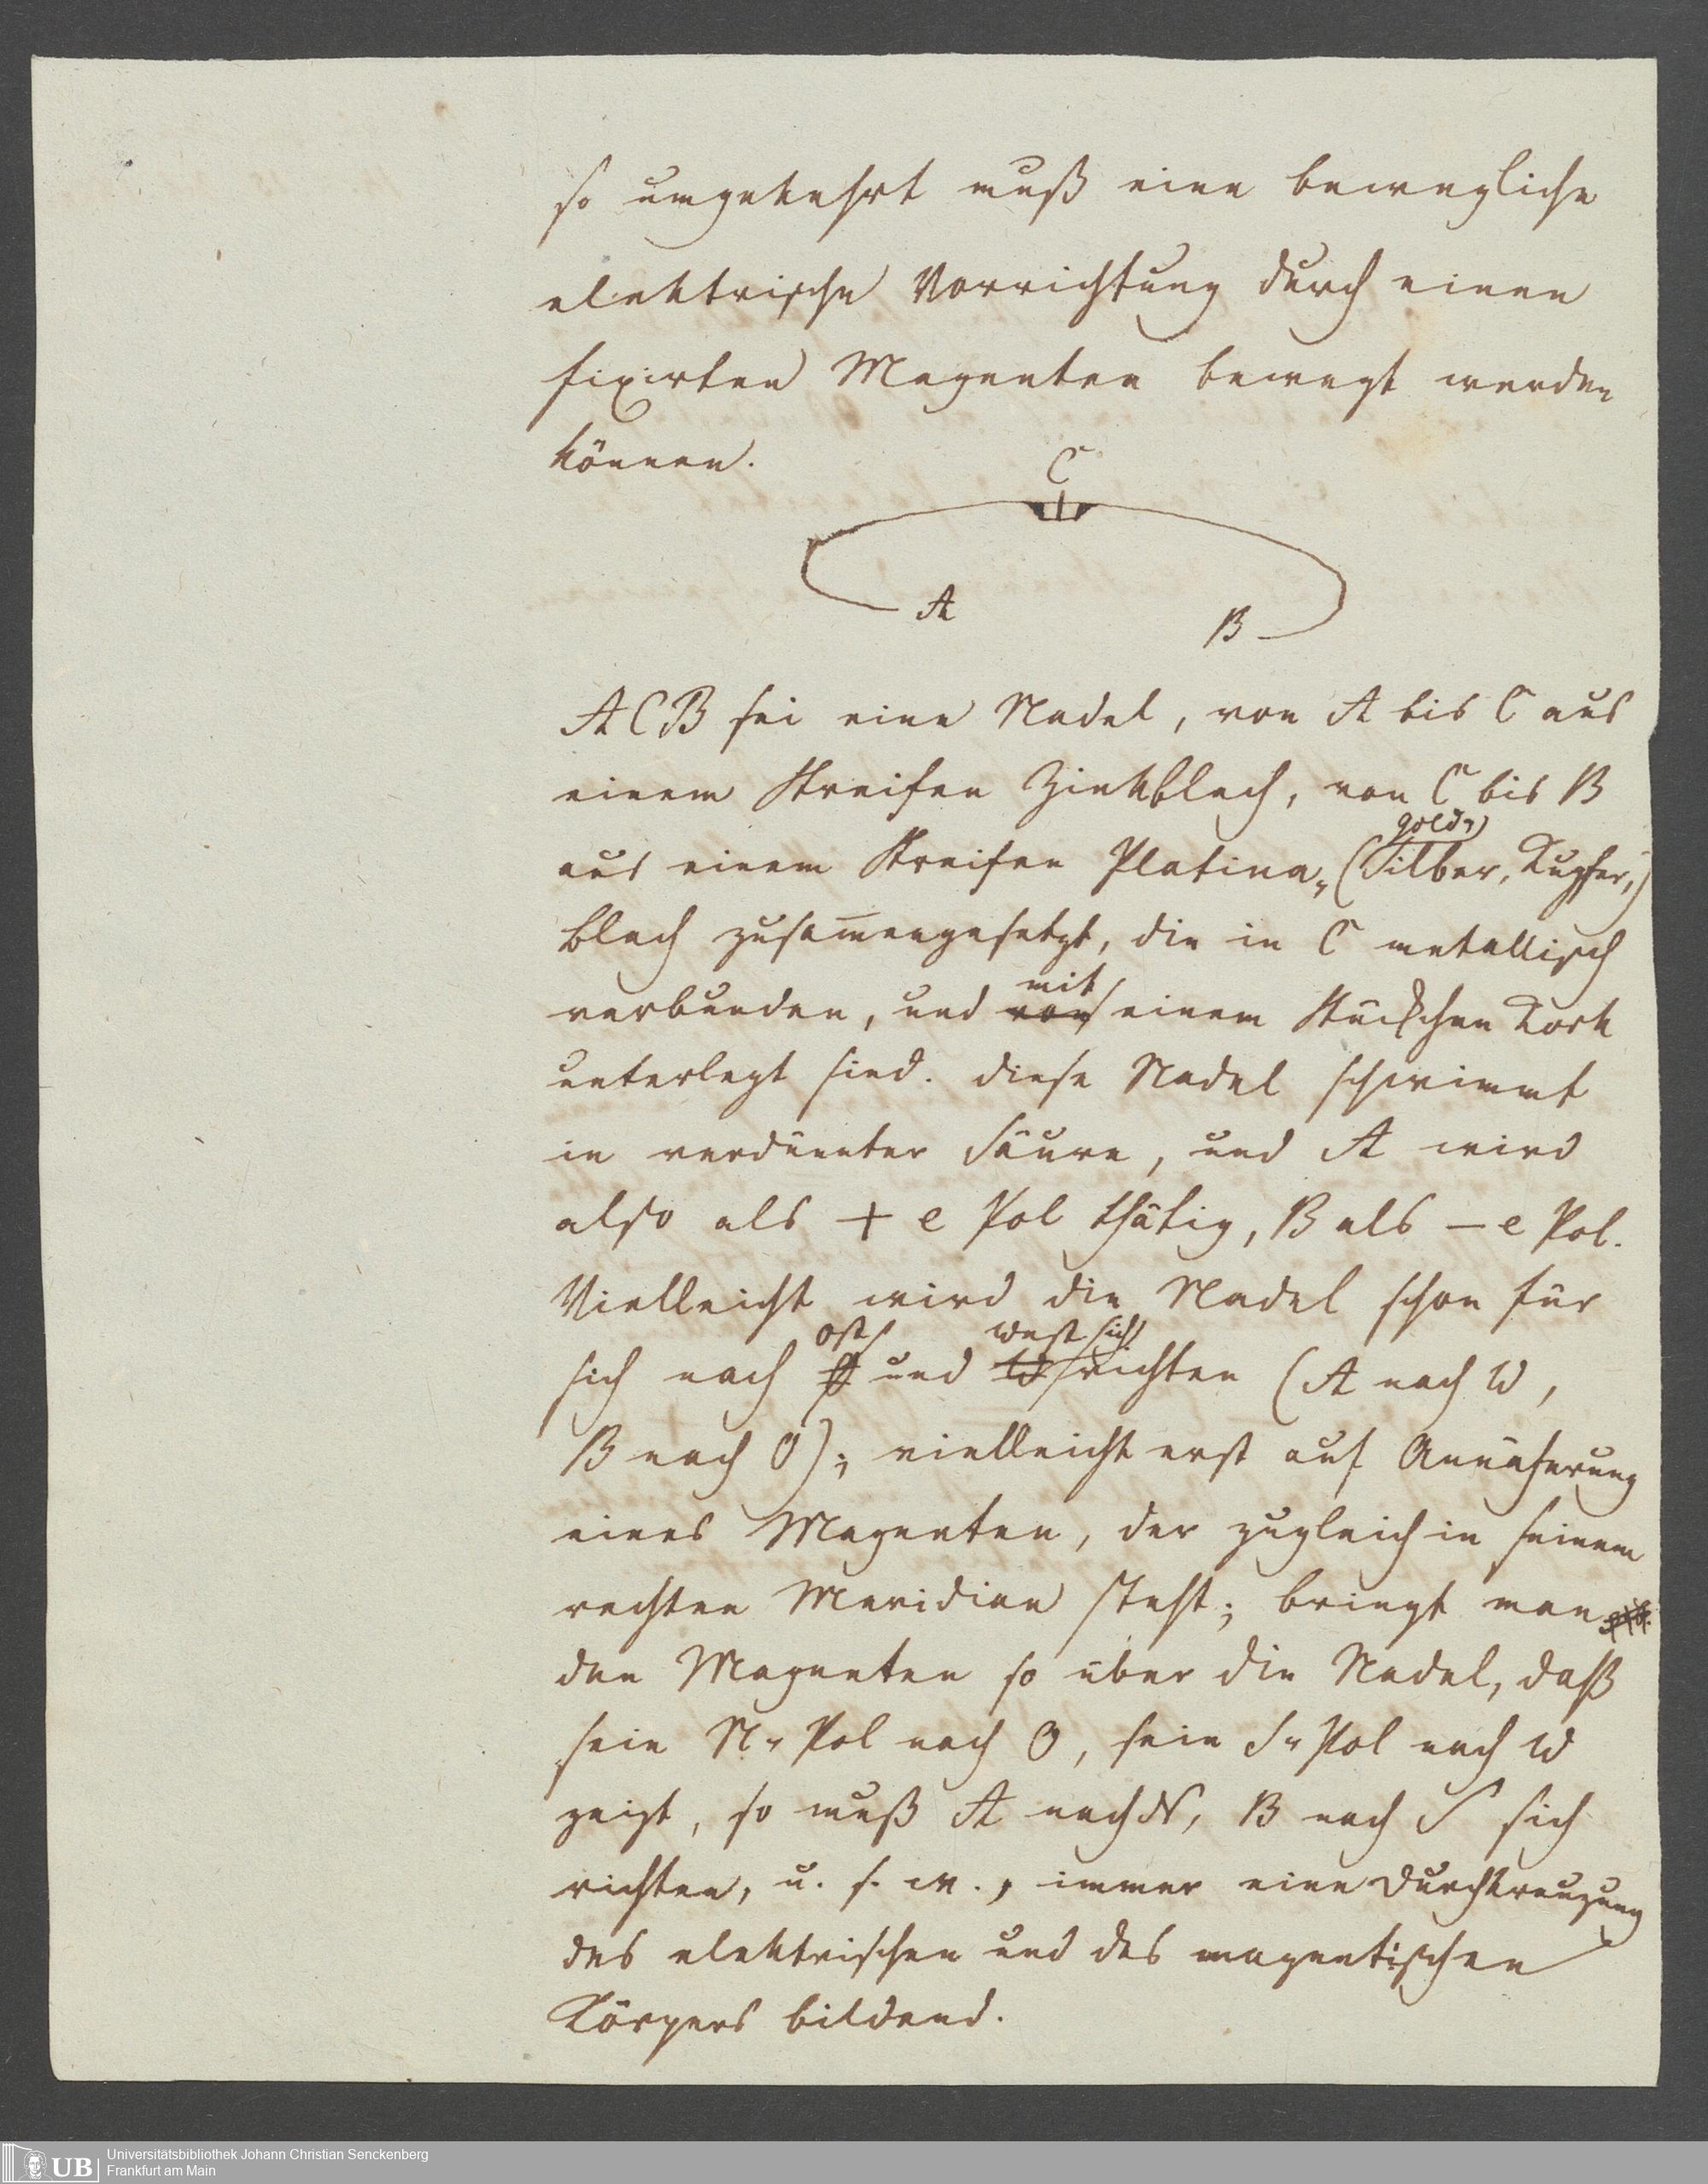 so umgekehrt muß eine bewegliche
elektrische Vorrichtung durch einen
fixirten Magneten bewegt werden
können.
C
A
B
ACB sei eine Nadel, von A bis C aus
einem Streifen Zinkblech, von C bis B
gold-,
aus einem Streifen Platina-, (Silber-, Kupfer-,)
blech zusam̅engesetzt, die in C metallisch
mit
verbunden, und von einem Stückchen Kork
unterlegt sind. diese Nadel schwimmt
in verdünnter Säure, und A wird
also als + e Pol thätig, B als – e Pol.
Vielleicht wird die Nadel schon für
ost west sich
sich nach und W richten (A nach W,
B nach O); vielleicht erst auf Annäherung
eines Magneten, der zugleich in seinem
rechten Meridian steht; bringt man
den Magneten so über die Nadel, daß
sein N-Pol nach O, sein S-Pol nach W
zeigt, so muß A nach N, B nach S sich
richten, u. s. w., immer eine Durchkreuzung
des elektrischen und des magnetischen
Körpers bildend.
UB
Universitätsbibliothek Johann Christian Senckenberg
Frankfurt am Main